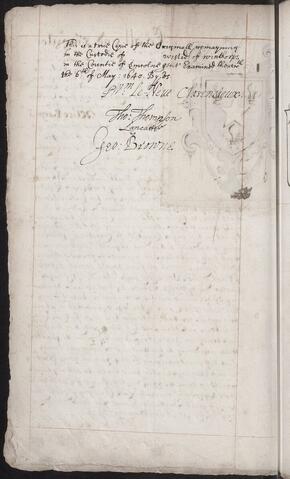 This is a true Copie of the Originall remayning
in the Custodie of Wistld of Winthorpe
in the Countie of Lincolne gent Examined therewth
the 6th of May: 1640. By us
Wm: Le Neve Clarenceux
Tho: Thompson
Lancaster
Geo: Browne